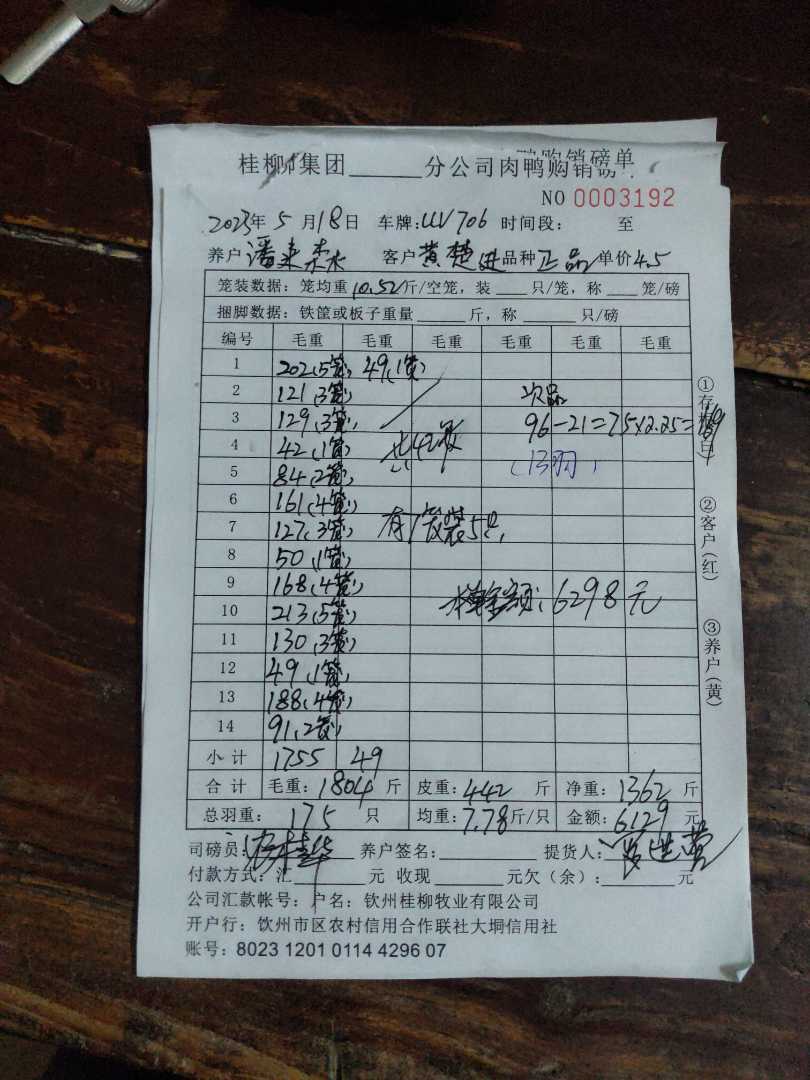 桂柳集团______分公司肉鸭购销磅单
NO 0003192
2023年5月18日 车牌:UV706 时间段: 至
养户 潘来 客户 黄楚进 品种 正品 单价 4.5
笼装数据：笼均重10.52斤/空笼，装___只/笼，称___笼/磅
捆脚数据：铁筐或板子重量____斤，称____只/磅
编号 毛重 毛重 毛重 毛重 毛重 毛重
1 202(5笼) 49(1笼)
2 121(3笼) 次品
3 129(3笼) 96-21=75×2.25=169
4 42(1笼) 共42笼
5 84(2笼) (13羽)
6 161(4笼)
7 127(3笼) 有1笼装5只
8 50(1笼)
9 168(4笼) 金额:6298元
10 213(5笼)
11 130(3笼)
12 49(1笼)
13 188(4笼)
14 91(2笼)
小计 1755 49
合计 毛重:1804斤 皮重:442斤 净重:1362斤
总羽重: 175 只 均重:7.78斤/只 金额:6129元
司磅员: 养户签名:________ 提货人:
付款方式:汇______元 收现______元欠(余):______元
公司汇款帐号: 户名: 钦州桂柳牧业有限公司
开户行: 饮州市区农村信用合作联社大垌信用社
账号: 8023 1201 0114 4296 07
①存根(白)
②客户(红)
③养户(黄)